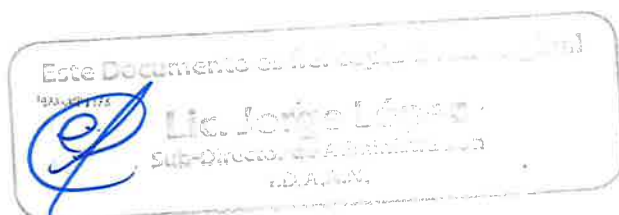 Este Documento es fiel copia
Lic. Jorge López
Sub-Director de Administración
I.D.A.A.N.